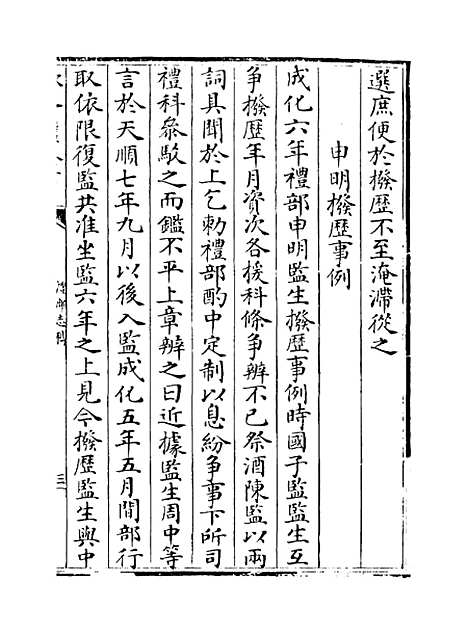 選庶便於撥歷不至淹滯從之
申明撥歷事例
成化六年禮部申明監生撥歷事例時國子監監生互
争撥歷年月資次各援科條争辨不已祭酒陳鑑以兩
詞具聞於上乞勅禮部酌中定制以息紛争事下所司
禮科叅駁之而鑑不平上章辨之曰近據監生周中等
言於天順七年九月以後入監成化五年五月間部行
取依限復監共准坐監六年之上見今撥歷監生與中